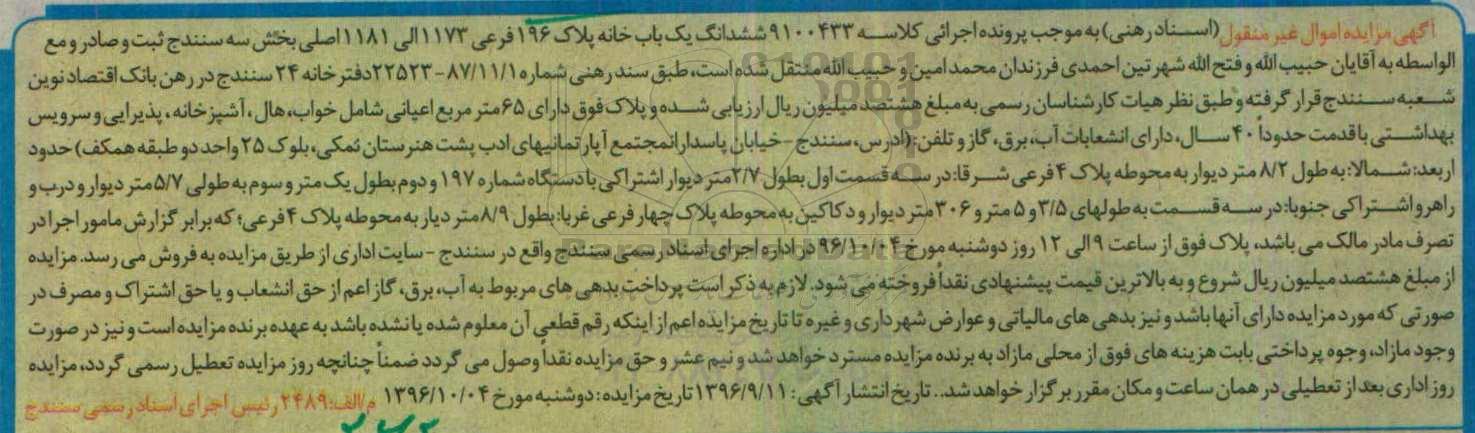 آگهی مزایده اموال غیر منقول (اسناد رهنی) به موجب پرونده اجرائی کلاسه ۹۱۰۰۴۳۳ ششدانگ یک باب خانه پلاک ۱۹۶ فرعی ۱۱۷۳ الی ۱۱۸۱ اصلی بخش سه سنندج ثبت و صادر و مع
الواسطه به آقایان حبیب الله و فتح الله شهرتین احمدی فرزندان محمد امین و حبیب الله منتقل شده است، طبق سند رهنی شماره ۸۷/۱۱/۱-۲۲۵۲۳ دفتر خانه ۲۴ سنندج در رهن بانک اقتصاد نوین
شعبه سنندج قرار گرفته و طبق نظر هیات کارشناسان رسمی به مبلغ هشتصد میلیون ریال ارزیابی شده و پلاک فوق دارای ۶۵ متر مربع اعیانی شامل خواب، هال، آشپزخانه، پذیرایی و سرویس
بهداشتی با قدمت حدوداً ۴۰ سال، دارای انشعابات آب، برق، گاز و تلفن: (ادرس، سنندج - خیابان پاسداران مجتمع آپارتمانیهای ادب پشت هنرستان نمکی، بلوک ۲۵ واحد دو طبقه همکف) حدود
اربعد: شمالا: به طول ۸/۲ متر دیوار به محوطه پلاک ۴ فرعی شرقا: در سه قسمت اول بطول ۲/۷ متر دیوار اشتراکی با دستگاه شماره ۱۹۷ و دوم بطول یک متر و سوم به طولی ۵/۷ متر دیوار و درب و
راهرو اشتراکی جنوبا: در سه قسمت به طولهای ۳/۵ و ۵ متر و ۳۰۶ متر دیوار و دکاکین به محوطه پلاک چهار فرعی غربا: بطول ۸/۹ متر دیار به محوطه پلاک ۴ فرعی؛ که برابر گزارش مامور اجرا در
تصرف مادر مالک می باشد، پلاک فوق از ساعت ۹ الی ۱۲ روز دوشنبه مورخ ۹۶/۱۰/۰۴ در اداره اجرای اسناد رسمی سنندج واقع در سنندج - سایت اداری از طریق مزایده به فروش می رسد. مزایده
از مبلغ هشتصد میلیون ریال شروع و به بالاترین قیمت پیشنهادی نقداً فروخته می شود. لازم به ذکر است پرداخت بدهی های مربوط به آب، برق، گاز اعم از حق انشعاب و یا حق اشتراک و مصرف در
صورتی که مورد مزایده دارای آنها باشد و نیز بدهی های مالیاتی و عوارض شهرداری و غیره تا تاریخ مزایده اعم از اینکه رقم قطعی آن معلوم شده یا نشده باشد به عهده برنده مزایده است و نیز در صورت
وجود مازاد، وجوه پرداختی بابت هزینه های فوق از محلی مازاد به برنده مزایده مسترد خواهد شد و نیم عشر و حق مزایده نقداً وصول می گردد ضمناً چنانچه روز مزایده تعطیل رسمی گردد، مزایده
روز اداری بعد از تعطیلی در همان ساعت و مکان مقرر برگزار خواهد شد.. تاریخ انتشار آگهی: ۱۳۹۶/۹/۱۱ تاریخ مزایده: دوشنبه مورخ ۱۳۹۶/۱۰/۰۴ م/الف: ۲۴۸۹ رئیس اجرای اسناد رسمی سنندج